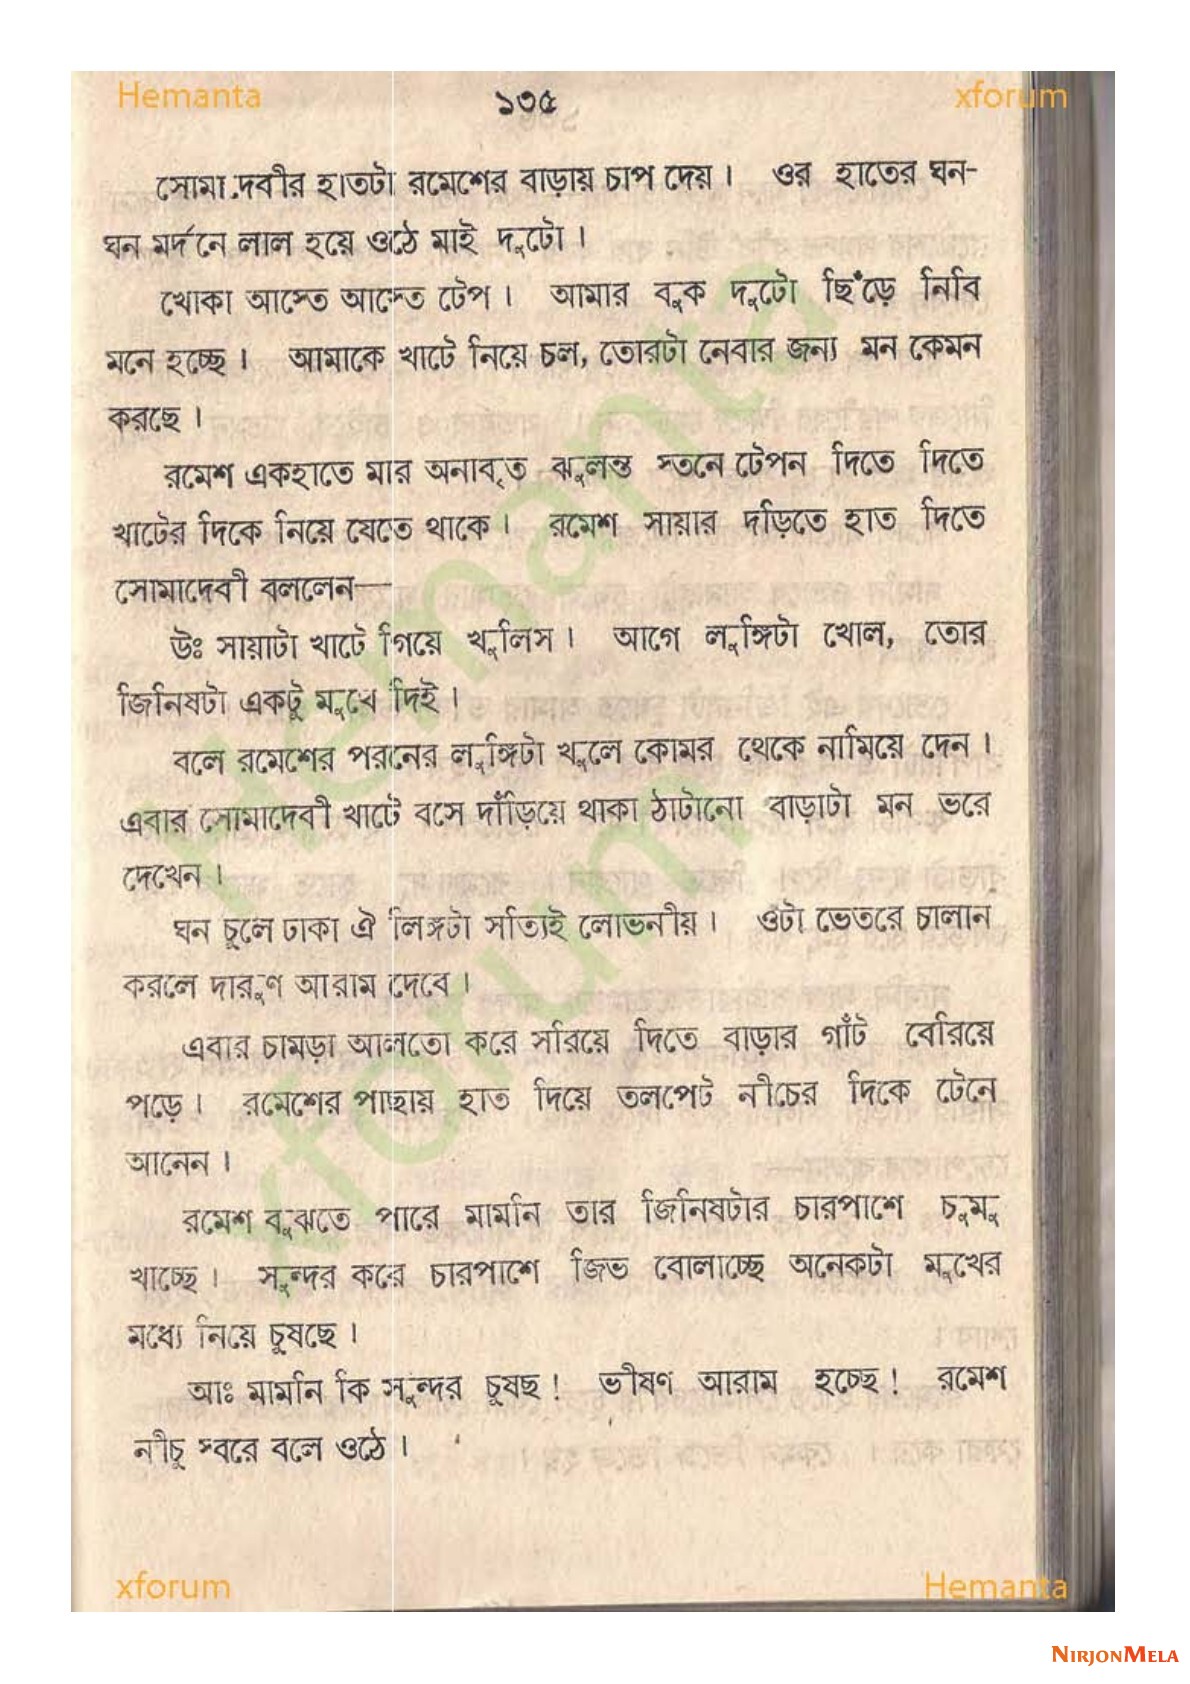 Hemanta
১৩৫
xforum
সোমাদেবীর হাতটা রমেশের বাড়ায় চাপ দেয়। ওর হাতের ঘন-
ঘন মর্দনে লাল হয়ে ওঠে মাই দুটো।
খোকা আস্তে আস্তে টেপ। আমার বুক দুটো ছিঁড়ে নিবি
মনে হচ্ছে। আমাকে খাটে নিয়ে চল, তোরটা নেবার জন্য মন কেমন
করছে।
রমেশ একহাতে মার অনাবৃত ঝুলন্ত স্তনে টেপন দিতে দিতে
খাটের দিকে নিয়ে যেতে থাকে। রমেশ সায়ার দড়িতে হাত দিতে
সোমাদেবী বললেন—
উঃ সায়াটা খাটে গিয়ে খুলিস। আগে লুঙ্গিটা খোল, তোর
জিনিষটা একটু মুখে দিই।
বলে রমেশের পরনের লুঙ্গিটা খুলে কোমর থেকে নামিয়ে দেন।
এবার সোমাদেবী খাটে বসে দাঁড়িয়ে থাকা ঠাটানো বাড়াটা মন ভরে
দেখেন।
ঘন চুলে ঢাকা ঐ লিঙ্গটা সত্যিই লোভনীয়। ওটা ভেতরে চালান
করলে দারুণ আরাম দেবে।
এবার চামড়া আলতো করে সরিয়ে দিতে বাড়ার গাঁট বেরিয়ে
পড়ে। রমেশের পাছায় হাত দিয়ে তলপেট নীচের দিকে টেনে
আনেন।
রমেশ বুঝতে পারে মামনি তার জিনিষটার চারপাশে চুমু
খাচ্ছে। সুন্দর করে চারপাশে জিভ বোলাচ্ছে অনেকটা মুখের
মধ্যে নিয়ে চুষছে।
আঃ মামনি কি সুন্দর চুষছ! ভীষণ আরাম হচ্ছে! রমেশ
নীচু স্বরে বলে ওঠে।
Hemanta
xforum
xforum
Hemanta
NIRJONMELA